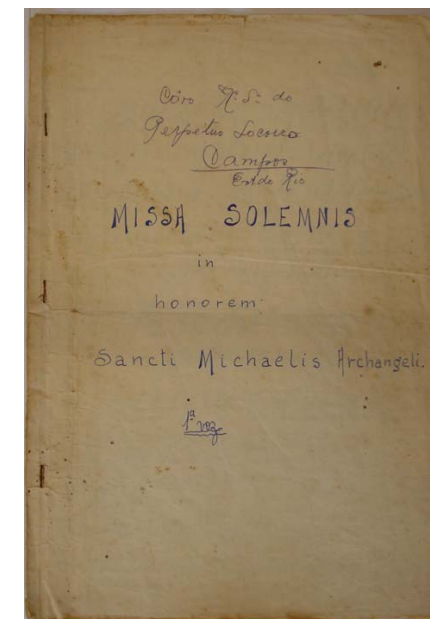 Côro N. S. do
Perpétuo Socorro
Campos
Est. do Rio
MISSA SOLEMNIS
in
honorem
Sancti Michaelis Archangeli.
1ª voz